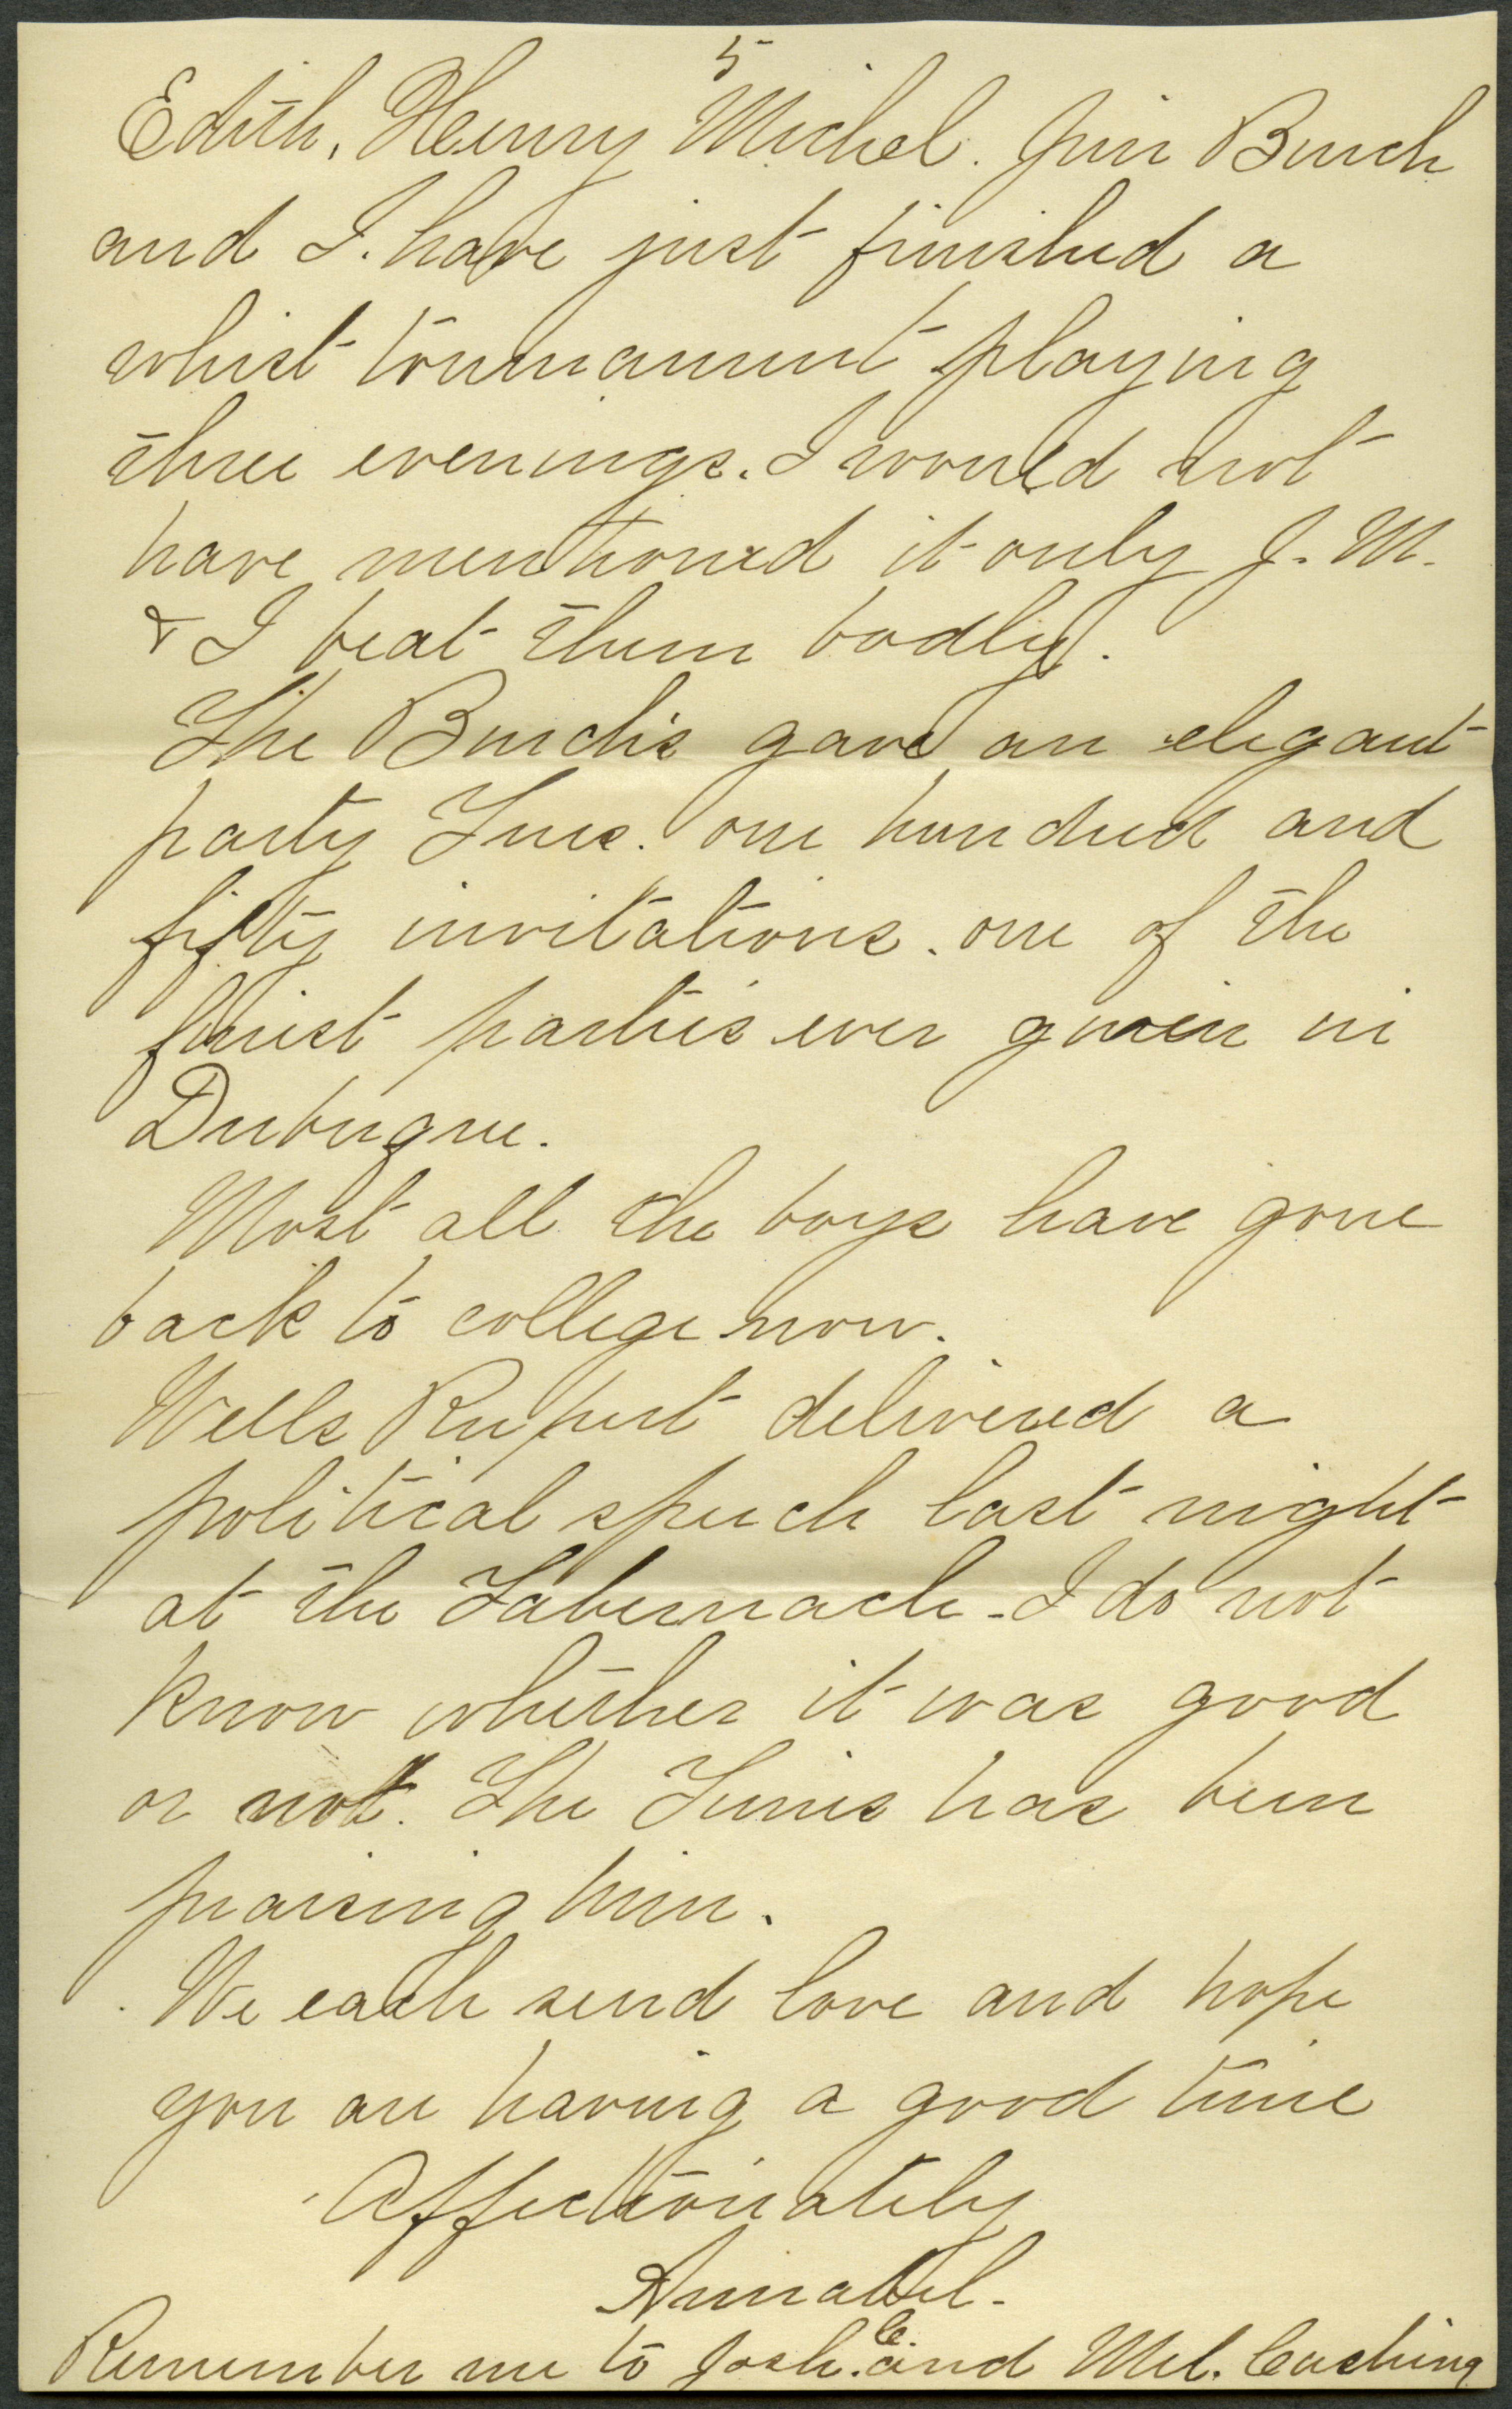 5
Edith, Henry Michel. Jim Burch
and I. have just finished a
whist tournament playing
three evenings. I would not
have mentioned it only J. M.
& I beat them badly.
The Burch's gave an elegant
party Tues. one hundred and
fifty invitations. one of the
finest parties ever given in
Dubuque.
Most all the boys have gone
back to college now.
Wells Rupert delivered a
political speech last night
at the Tabernacle - I do not
know whether it was good
or not. The Times has been
praising him.
We each send love and hope
you are having a good time
Affectionately
Annabel.
Remember me to Josh. C. and Mel. Cushing